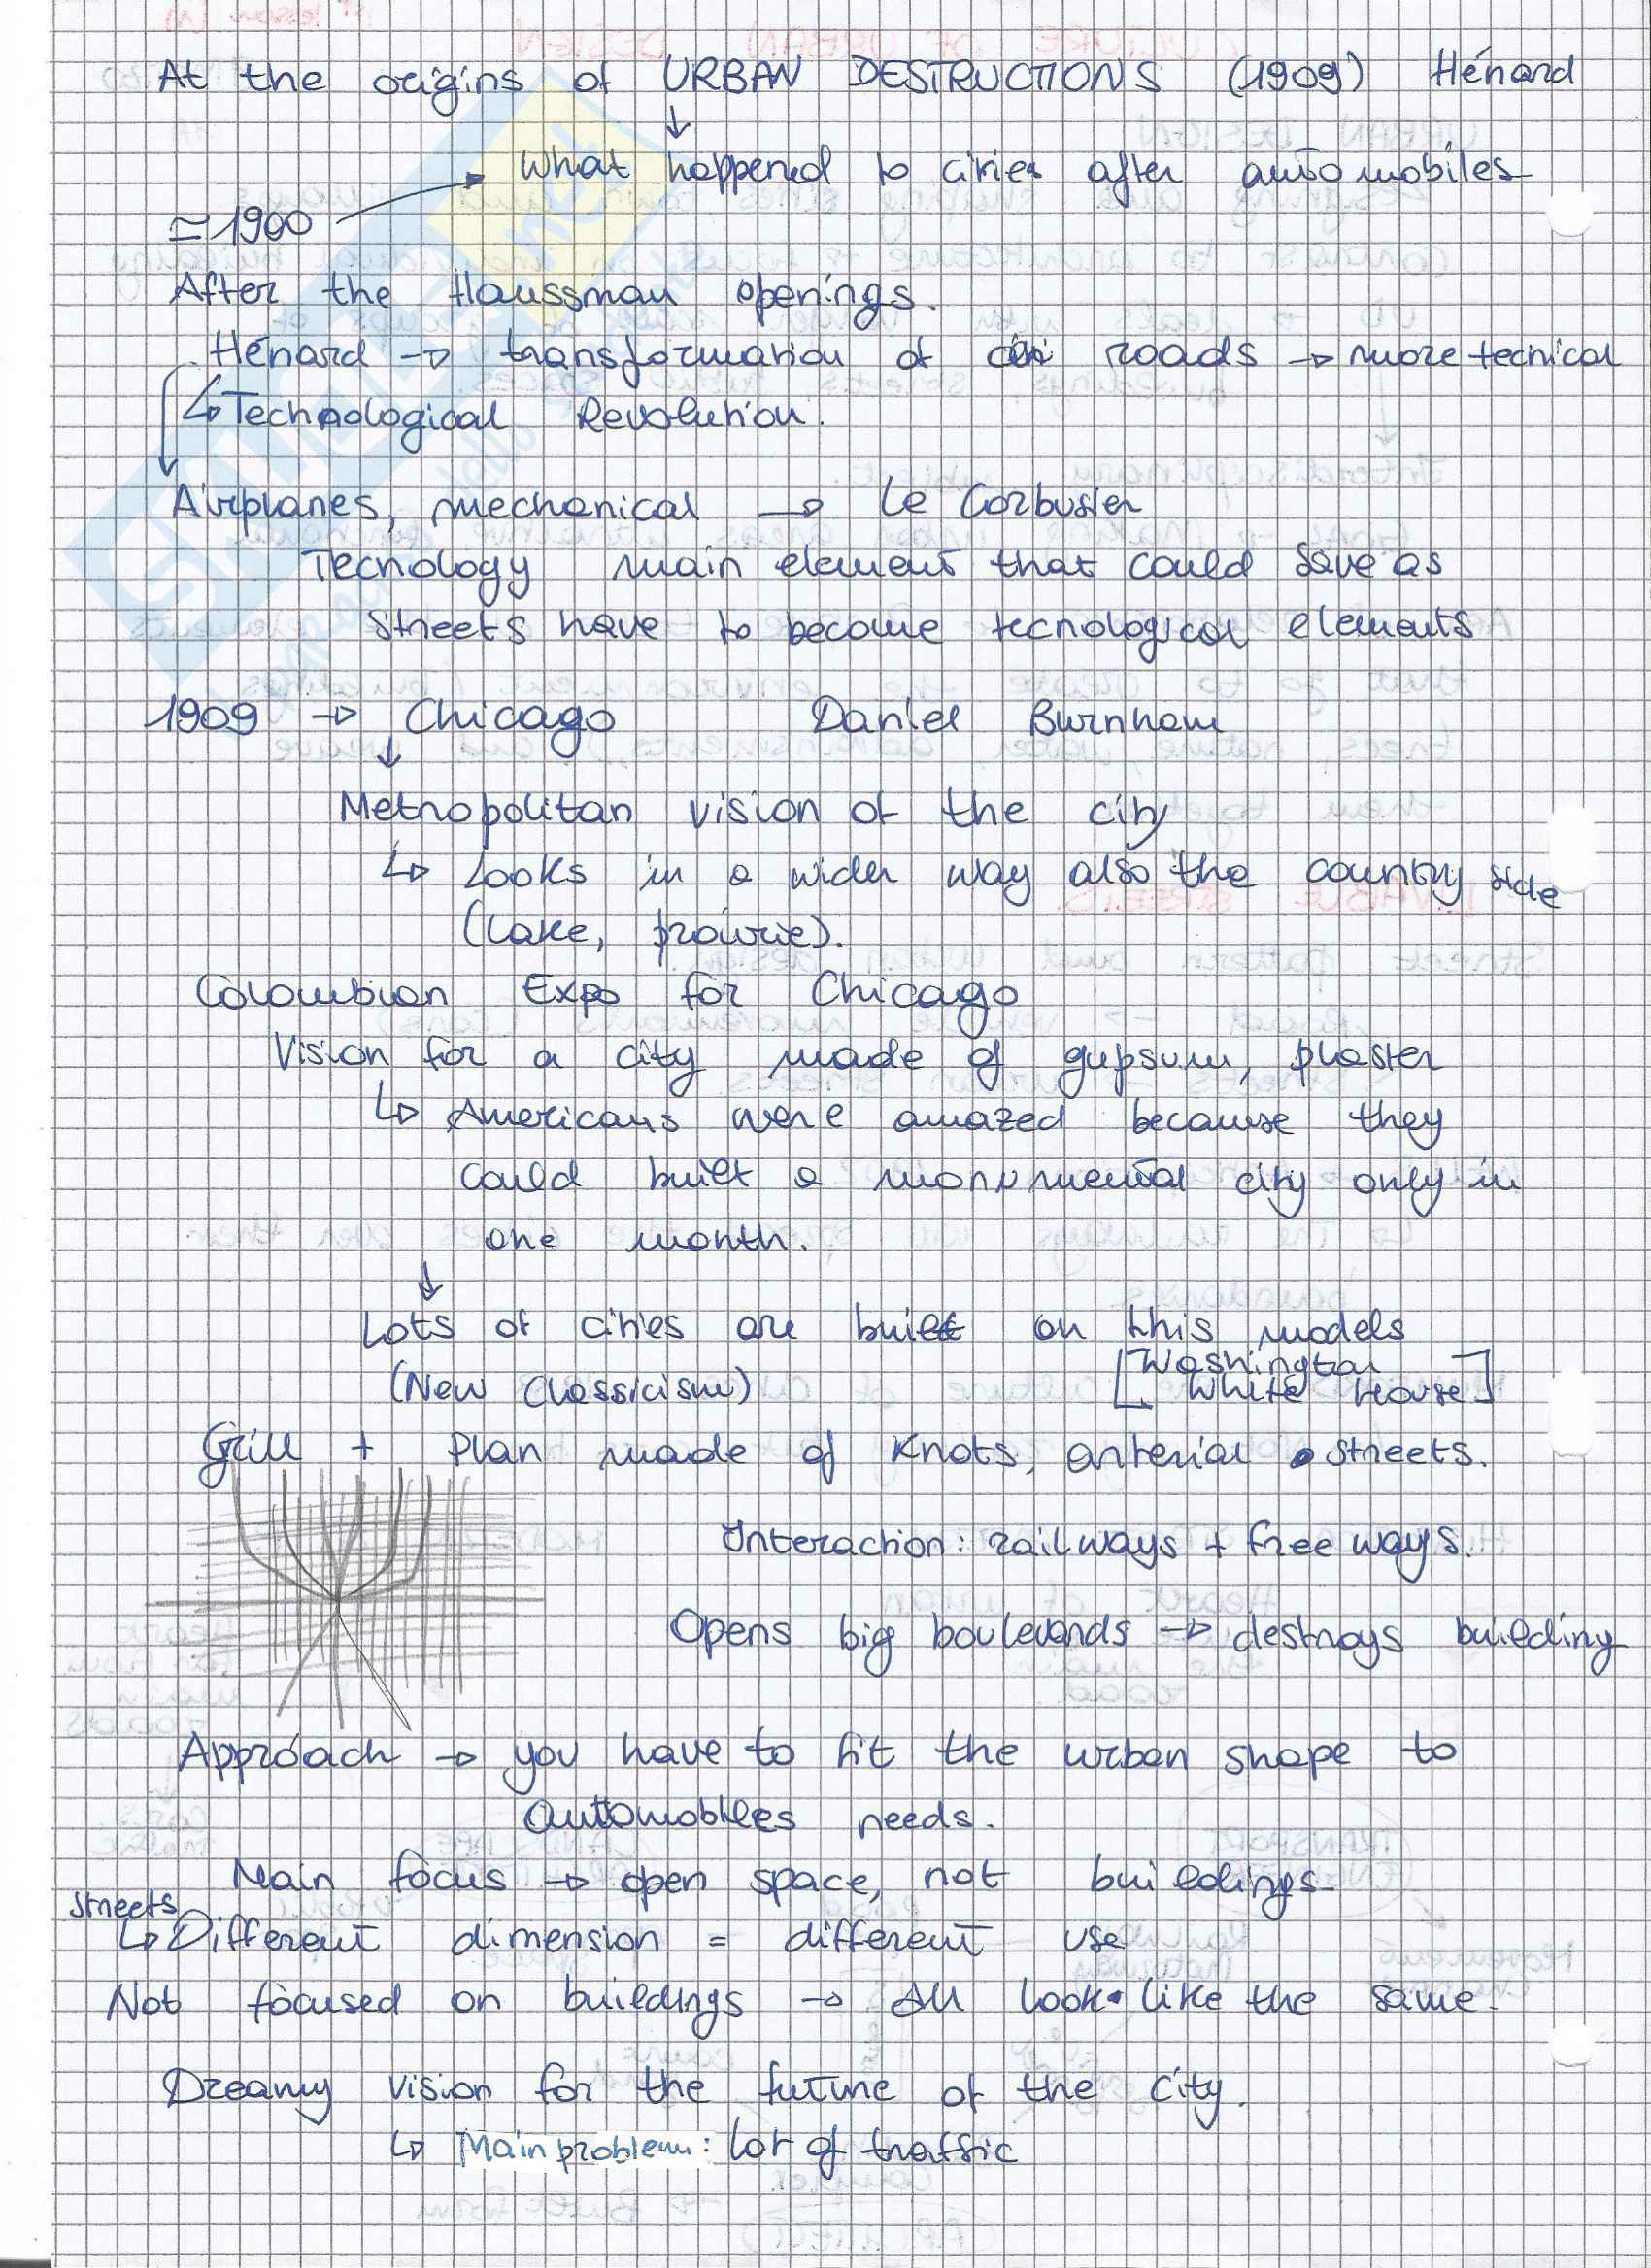 At the origins of URBAN DESTRUCTIONS (1909) Hénard
↓
what happened to cities after automobiles
≃1900
After the Haussman openings.
Hénard → transformation of roads → more tecnical
↳ Technological Revolution.
Airplanes, mechanical → Le Corbusier
Tecnology main element that could save as
Streets have to become tecnological elements
1909 → Chicago Daniel Burnham
↓
Metropolitan vision of the city
↳ Looks in a wider way also the country side
(Lake, prairie).
Colombian Expo for Chicago
Vision for a city made of gypsum, plaster
↳ Americans were amazed because they
could built a monumental city only in
one month.
↓
Lots of cities are built on this models
(New Classicism) [Washington
White House]
Grill + Plan made of knots, arterial streets.
Interaction: railways + free ways.
Opens big boulevards → destroys building
Approach → you have to fit the urban shape to
automobiles needs.
Main focus → open space, not buildings.
streets
↳ Different dimension = different use
Not focused on buildings → All look like the same.
Dreamy vision for the future of the city.
↳ Main problem: lot of traffic